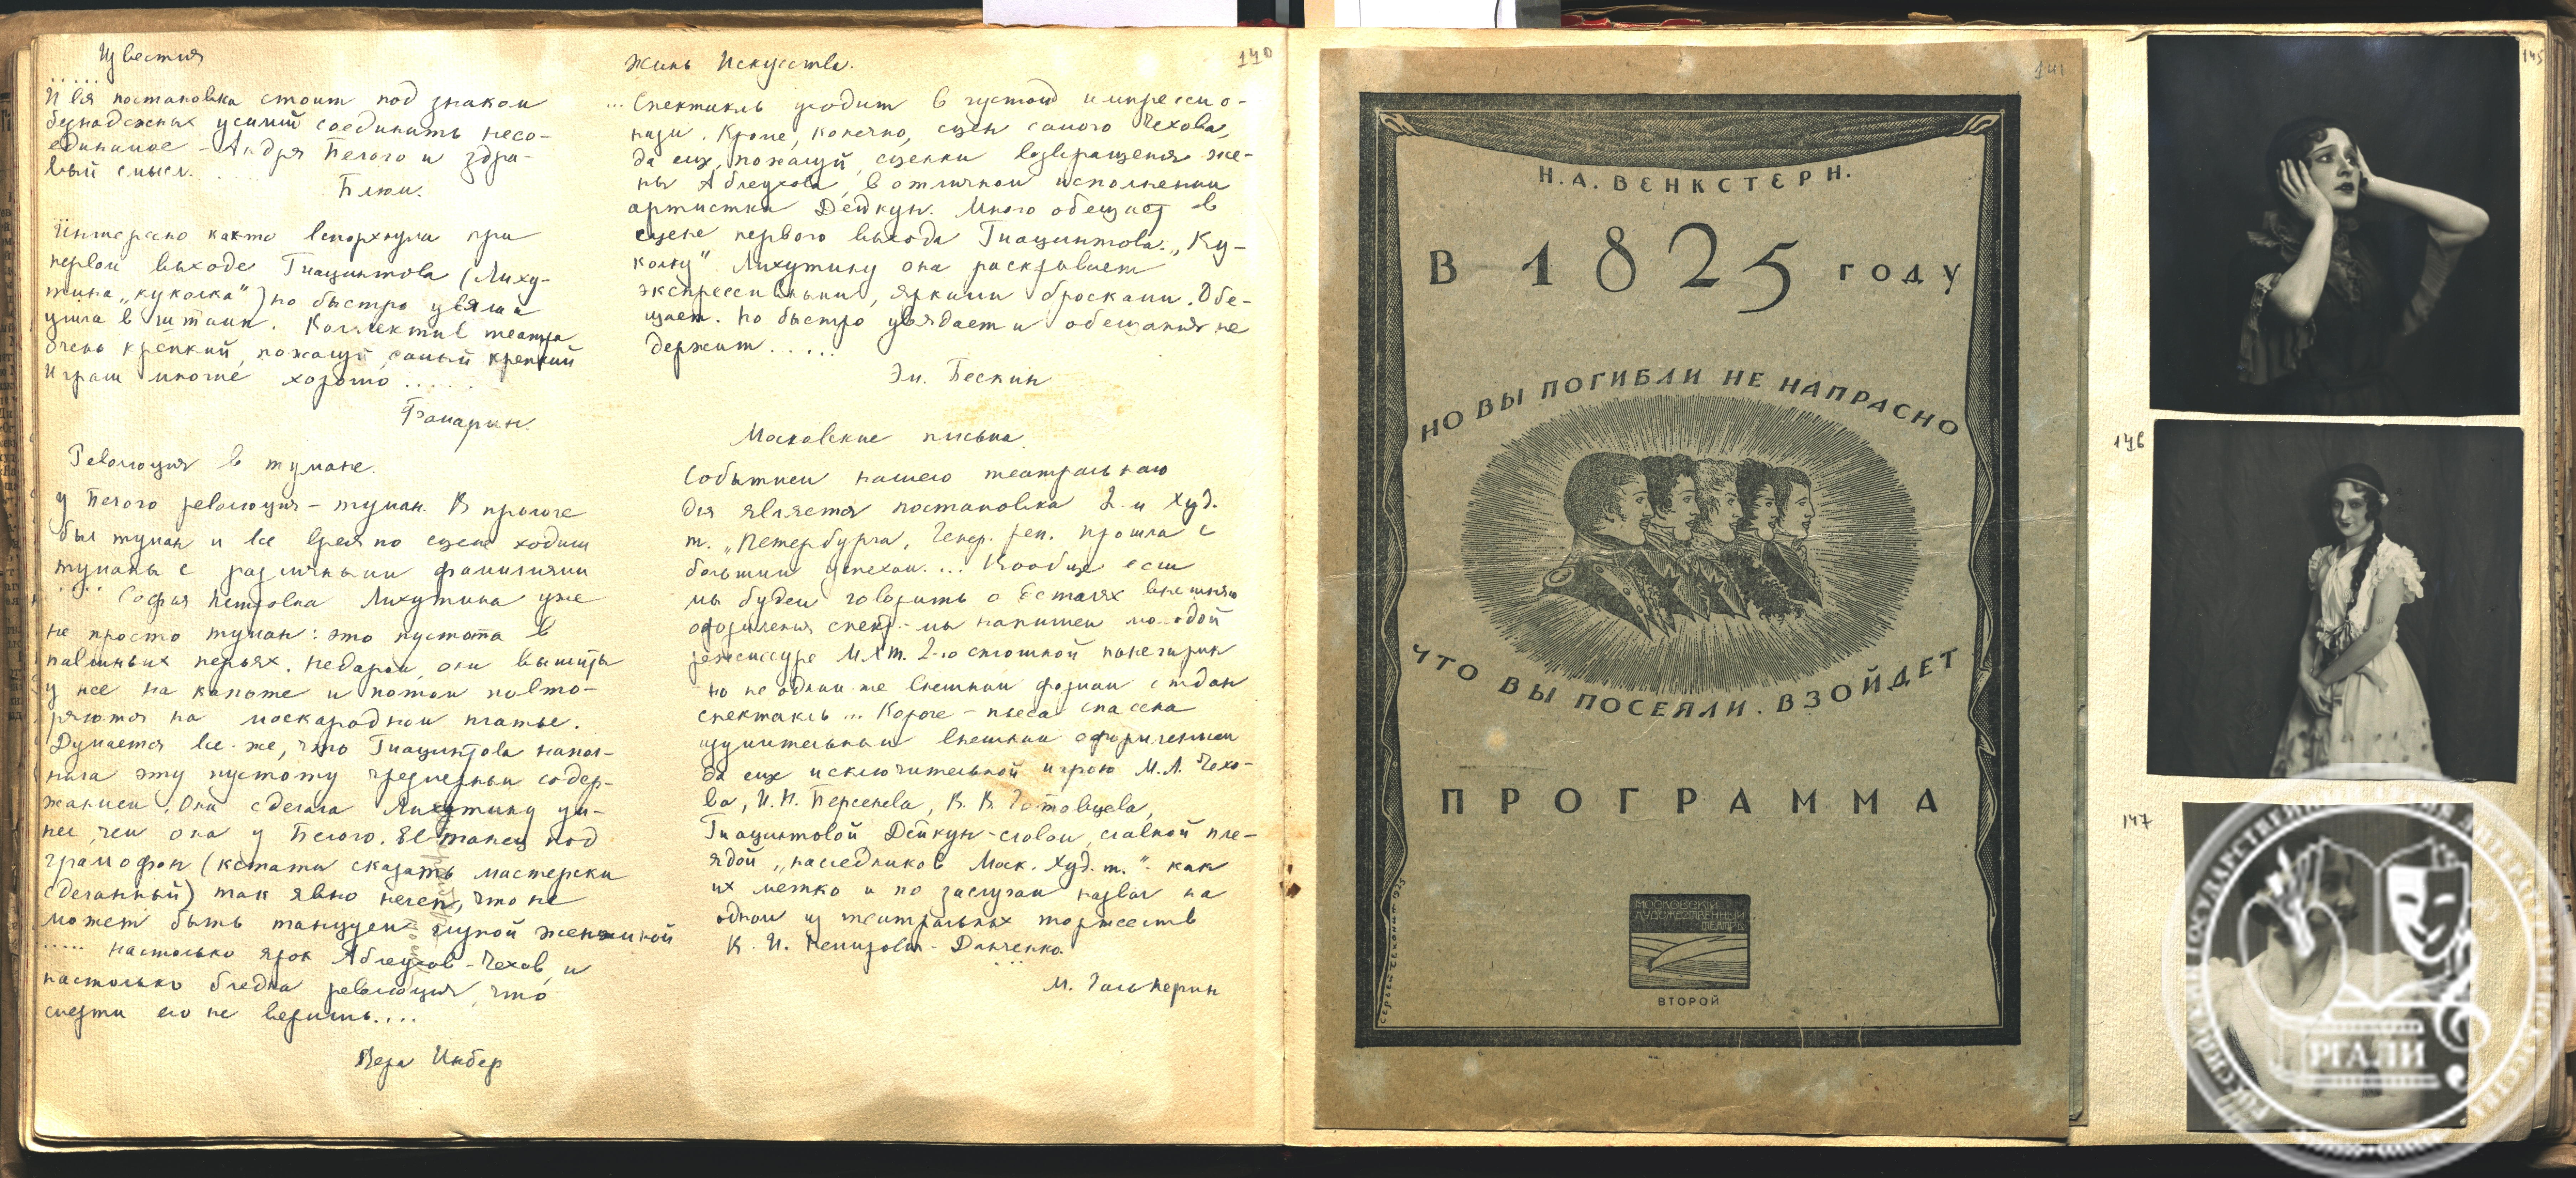 Известия
.....
И вся постановка стоит под знаком
безнадежных усилий соединить несо-
единимое - Андрея Белого и здра-
вый смысл.....
Блюм.
Интересно как-то вспорхнула при
первом выходе Гиацинтова (Лиху-
тина "куколка") но быстро увяла и
ушла в штамп. Коллектив театра
очень крепкий, пожалуй, самый крепкий
Играли многие хорошо.....
Фамарин.
Революция в тумане.
У Белого революция - туман. В прологе
был туман и все время по сцене ходили
туманы с различными фамилиями
..... Софья Петровна Лихутина уже
не просто туман: это пустота в
павлиньих перьях. Недаром, они вышиты
у нее на капоте и потом повто-
ряются на маскарадном платье.
Думается все-же, что Гиацинтова напол-
нила эту пустоту чрезмерным содер-
жанием. Она сделала Лихутину ум-
нее, чем она у Белого. Её танец под
грамофон (кстати сказать мастерски
сделанный) так явно нелеп, что не
может быть танцуем глупой женщиной
..... настолько ярок Аблеухов-Чехов, и
настолько бледна революция, что
смерти его не веришь....
Вера Инбер
140
Жизнь Искусства.
... Спектакль уходит в густой импрессио-
низм. Кроме, конечно, сцен самого Чехова,
да еще, пожалуй, сценки возвращения же-
ны Аблеухова, в отличном исполнении
артистки Дейкун. Много обещает в
сцене первого выхода Гиацинтова. "Ку-
колку" Лихутину она раскрывает
экспрессивными, яркими бросками. Обе-
щает. Но быстро увядает и обещания не
держит.....
Эм. Бескин
Московские письма.
Событием нашего театрального
дня является постановка 2-м Худ.
т. "Петербурга". Генер. реп. прошла с
большим успехом.... Вообще если
мы будем говорить о деталях внешнего
оформления спект.-мы напишем молодой
режиссуре МХТ. 2-го сплошной панегирик
но не одним-же внешним формам отдан
спектакль... Короче - пьеса спасена
изумительным внешним оформлением
да еще исключительной игрою М.А. Чехо-
ва, И.Н. Берсенева, В.В. Готовцева,
Гиацинтовой Дейкун-словом, славной пле-
ядой "наследников Моск. Худ. т." - как
их метко и по заслугам назвал на
одном из театральных торжеств
В. И. Немирович-Данченко.
...
М. Гальперин
141
Н. А. ВЕНКСТЕРН.
В 1825 ГОДУ
НО ВЫ ПОГИБЛИ НЕ НАПРАСНО
ЧТО ВЫ ПОСЕЯЛИ. ВЗОЙДЕТ
ПРОГРАММА
МОСКОВСКИЙ
ХУДОЖЕСТВЕННЫЙ
ТЕАТРЪ
ВТОРОЙ
145
146
147
РГАЛИ